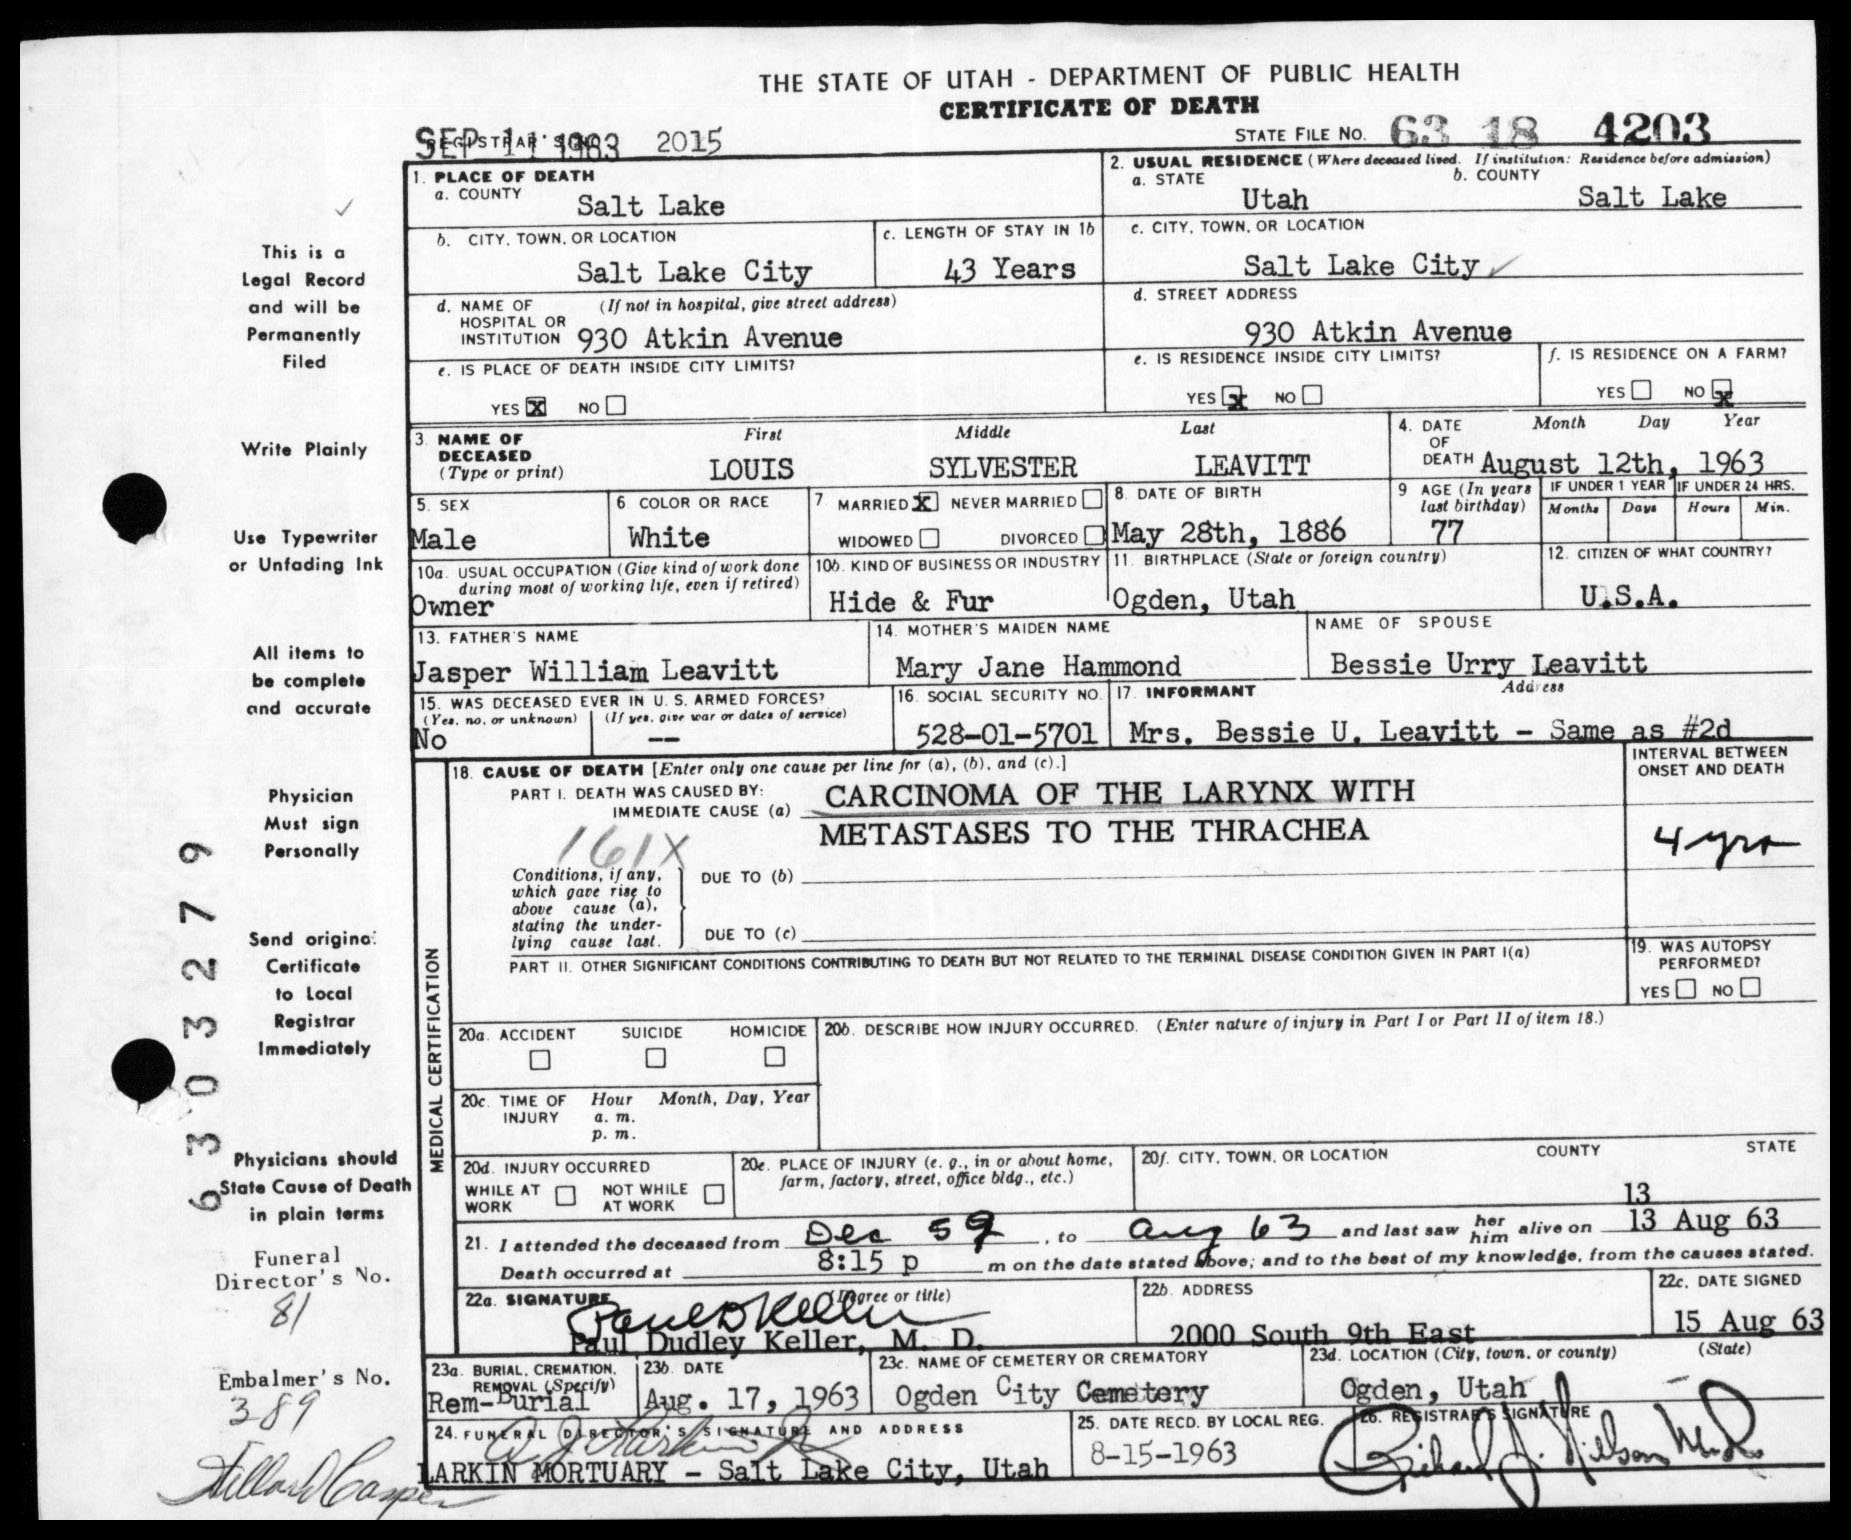 THE STATE OF UTAH - DEPARTMENT OF PUBLIC HEALTH
CERTIFICATE OF DEATH
SEP 11 1963 REGISTRAR'S NO. 2015
STATE FILE NO. 63 18 4203
1. PLACE OF DEATH
a. COUNTY
Salt Lake
2. USUAL RESIDENCE (Where deceased lived. If institution: Residence before admission)
a. STATE b. COUNTY
Utah Salt Lake
b. CITY, TOWN, OR LOCATION
Salt Lake City
c. LENGTH OF STAY IN 1b
43 Years
c. CITY, TOWN, OR LOCATION
Salt Lake City
d. NAME OF HOSPITAL OR INSTITUTION (If not in hospital, give street address)
930 Atkin Avenue
d. STREET ADDRESS
930 Atkin Avenue
e. IS PLACE OF DEATH INSIDE CITY LIMITS?
YES X NO
e. IS RESIDENCE INSIDE CITY LIMITS?
YES X NO
f. IS RESIDENCE ON A FARM?
YES NO X
3. NAME OF DECEASED (Type or print)
First Middle Last
LOUIS SYLVESTER LEAVITT
4. DATE OF DEATH Month Day Year
August 12th, 1963
5. SEX
Male
6 COLOR OR RACE
White
7 MARRIED X NEVER MARRIED
WIDOWED DIVORCED
8. DATE OF BIRTH
May 28th, 1886
9 AGE (In years last birthday)
77
IF UNDER 1 YEAR IF UNDER 24 HRS.
Months Days Hours Min.
10a. USUAL OCCUPATION (Give kind of work done during most of working life, even if retired)
Owner
10b. KIND OF BUSINESS OR INDUSTRY
Hide & Fur
11. BIRTHPLACE (State or foreign country)
Ogden, Utah
12. CITIZEN OF WHAT COUNTRY?
U.S.A.
13. FATHER'S NAME
Jasper William Leavitt
14. MOTHER'S MAIDEN NAME
Mary Jane Hammond
NAME OF SPOUSE
Bessie Urry Leavitt
15. WAS DECEASED EVER IN U. S. ARMED FORCES?
(Yes, no, or unknown) (If yes, give war or dates of service)
No --
16. SOCIAL SECURITY NO.
528-01-5701
17. INFORMANT Address
Mrs. Bessie U. Leavitt - Same as #2d
MEDICAL CERTIFICATION
18. CAUSE OF DEATH [Enter only one cause per line for (a), (b), and (c).]
PART I. DEATH WAS CAUSED BY:
IMMEDIATE CAUSE (a) CARCINOMA OF THE LARYNX WITH
METASTASES TO THE THRACHEA
161X
INTERVAL BETWEEN ONSET AND DEATH
4 yrs
Conditions, if any, which gave rise to above cause (a), stating the underlying cause last.
DUE TO (b)
DUE TO (c)
PART II. OTHER SIGNIFICANT CONDITIONS CONTRIBUTING TO DEATH BUT NOT RELATED TO THE TERMINAL DISEASE CONDITION GIVEN IN PART I(a)
19. WAS AUTOPSY PERFORMED?
YES NO
20a. ACCIDENT SUICIDE HOMICIDE
20b. DESCRIBE HOW INJURY OCCURRED. (Enter nature of injury in Part I or Part II of item 18.)
20c. TIME OF INJURY Hour Month, Day, Year
a. m.
p. m.
20d. INJURY OCCURRED
WHILE AT WORK NOT WHILE AT WORK
20e. PLACE OF INJURY (e. g., in or about home, farm, factory, street, office bldg., etc.)
20f. CITY, TOWN, OR LOCATION COUNTY STATE
13
21. I attended the deceased from Dec 59, to Aug 63 and last saw her him alive on 13 Aug 63
Death occurred at 8:15 p m on the date stated above; and to the best of my knowledge, from the causes stated.
22a. SIGNATURE (Degree or title)
Paul D Keller
Paul Dudley Keller, M. D.
22b. ADDRESS
2000 South 9th East
22c. DATE SIGNED
15 Aug 63
23a. BURIAL, CREMATION, REMOVAL (Specify)
Rem-Burial
23b. DATE
Aug. 17, 1963
23c. NAME OF CEMETERY OR CREMATORY
Ogden City Cemetery
23d. LOCATION (City, town, or county) (State)
Ogden, Utah
24. FUNERAL DIRECTOR'S SIGNATURE AND ADDRESS
LARKIN MORTUARY - Salt Lake City, Utah
25. DATE RECD. BY LOCAL REG.
8-15-1963
26. REGISTRAR'S SIGNATURE
This is a
Legal Record
and will be
Permanently
Filed
Write Plainly
Use Typewriter
or Unfading Ink
All items to
be complete
and accurate
Physician
Must sign
Personally
Send original
Certificate
to Local
Registrar
Immediately
Physicians should
State Cause of Death
in plain terms
Funeral
Director's No.
81
Embalmer's No.
389
6303279